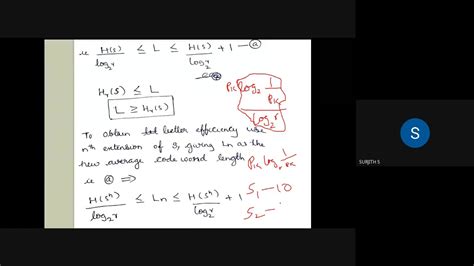 ie H(s)/log₂r ≤ L ≤ H(s)/log₂r + 1 — ⓐ
Hr(s) ≤ L
L ≥ Hr(s)
PK log₂ 1/PK
log₂r
To obtain better efficiency use
nth extension of S, giving Ln as the
new average code word length
PK log 1/PK
ie ⓐ ⇒
H(sⁿ)/log₂r ≤ Ln ≤ H(sⁿ)/log₂r + 1
S₁ — 10
S₂ —
S
SURJITH S